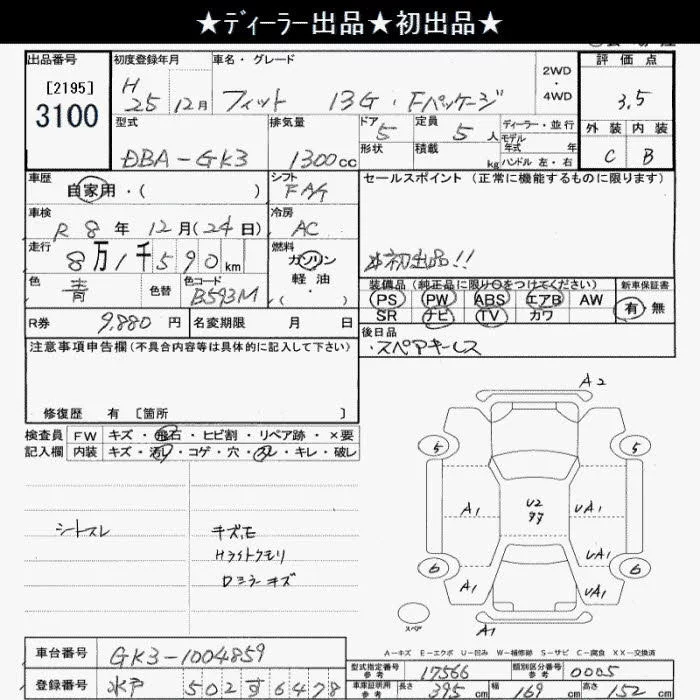 ★ディーラー出品★初出品★
出品番号 初度登録年月 車名・グレード 2WD・4WD 評価点
[2195]
3100
H 25年 12月 フィット 13G・Fパッケージ 3.5
型式 排気量 ドア 5 定員 5人 ディーラー・並行 外装 内装
DBA-GK3 1300cc 形状 積載 kg モデル年式 年 C B
ハンドル 左・右
車歴 自家用・( ) シフト FAT セールスポイント (正常に機能するものに限ります)
車検 R 8年 12月(24日) 冷房 AC
走行 8万1千590km 燃料 ガソリン 軽油・( ) 初出品!!
色 青 色替 色コード B593M 装備品(純正品に限り○をつけてください) 新車保証書
PS PW ABS エアB AW 有・無
SR ナビ TV カワ
R券 9,880円 名変期限 月 日 後日品
・スペアキーレス
注意事項申告欄(不具合内容等は具体的に記入して下さい)
修復歴 有 [箇所 ]
A2
検査員 FW キズ・飛石・ヒビ割・リペア跡・×要
記入欄 内装 キズ・汚レ・コゲ・穴・スレ・キレ・破レ
5 5
A1 U2 UA1
シートスレ キズ.E
Hライトクモリ UA1
Dミラーキズ
6 6
A1 UA1
スペア A1
A-キズ E-エクボ U-凹み W-補修跡 S-サビ C-腐食 XX-交換済
車台番号 GK3-1004859
型式指定番号 参考 17566 類別区分番号 参考 0005
登録番号 水戸 502 す 6478
車庫証明用 参考 長さ 395cm 幅 169 高さ 152cm